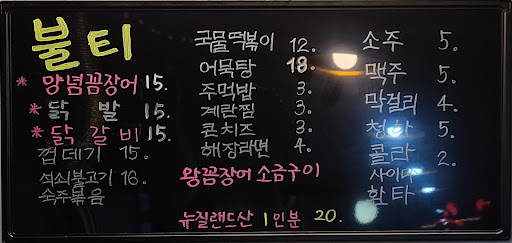 불티
* 양념꼼장어 15.
* 닭 발 15.
* 닭 갈비 15.
껍데기 15.
석쇠불고기 16.
숙주볶음
국물떡볶이 12.
어묵탕 18.
주먹밥 3.
계란찜 3.
콘치즈 3.
해장라면 4.
왕꼼장어 소금구이
뉴질랜드산 1인분 20.
소주 5.
맥주 5.
막걸리 4.
청하 5.
콜라 2.
사이다
환타